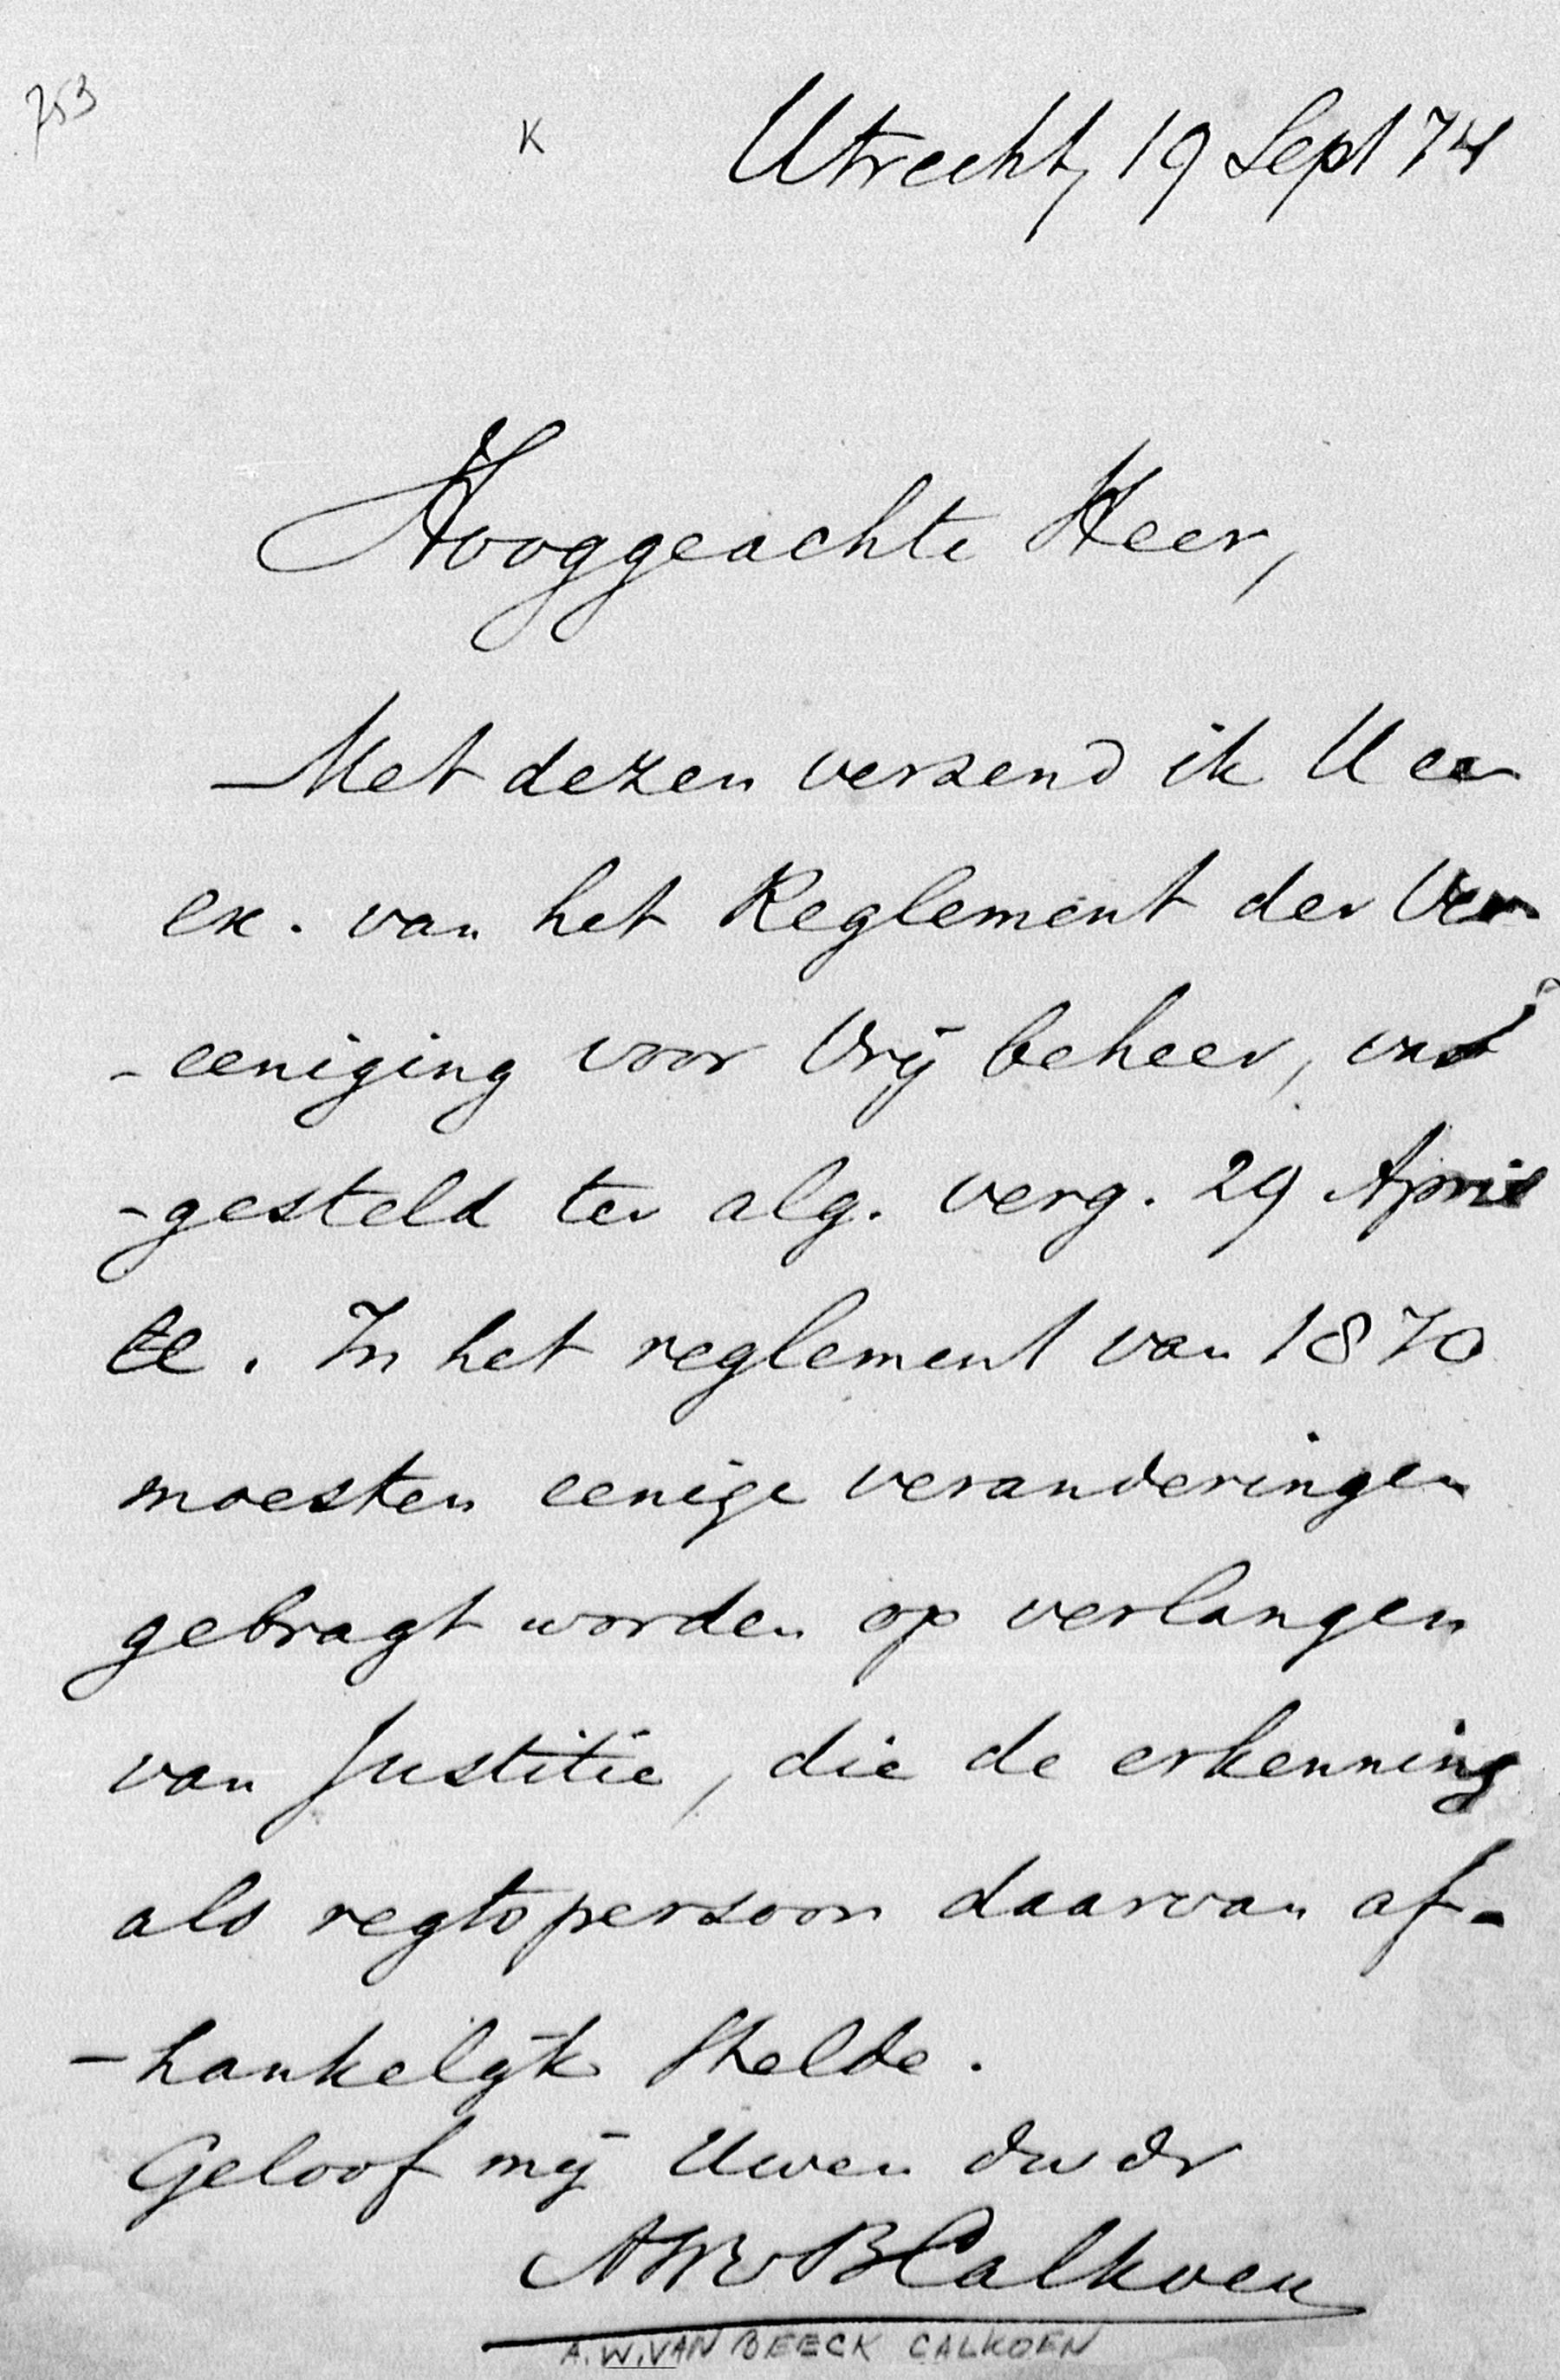 753
K
Utrecht, 19 Sept 74
Hooggeachte Heer,
Met dezen verzend ik U een
ex. van het Reglement der Ver
-eeniging voor Vrij beheer, vast
-gesteld ter alg. verg. 29 April
ll. In het reglement van 1870
moesten eenige veranderingen
gebragt worden op verlangen
van Justitie, die de erkenning
als regtspersoon daarvan af-
-hankelijk stelde.
Geloof mij Uwen dw dr
AWvBCalkoen
A.W. VAN BEECK CALKOEN